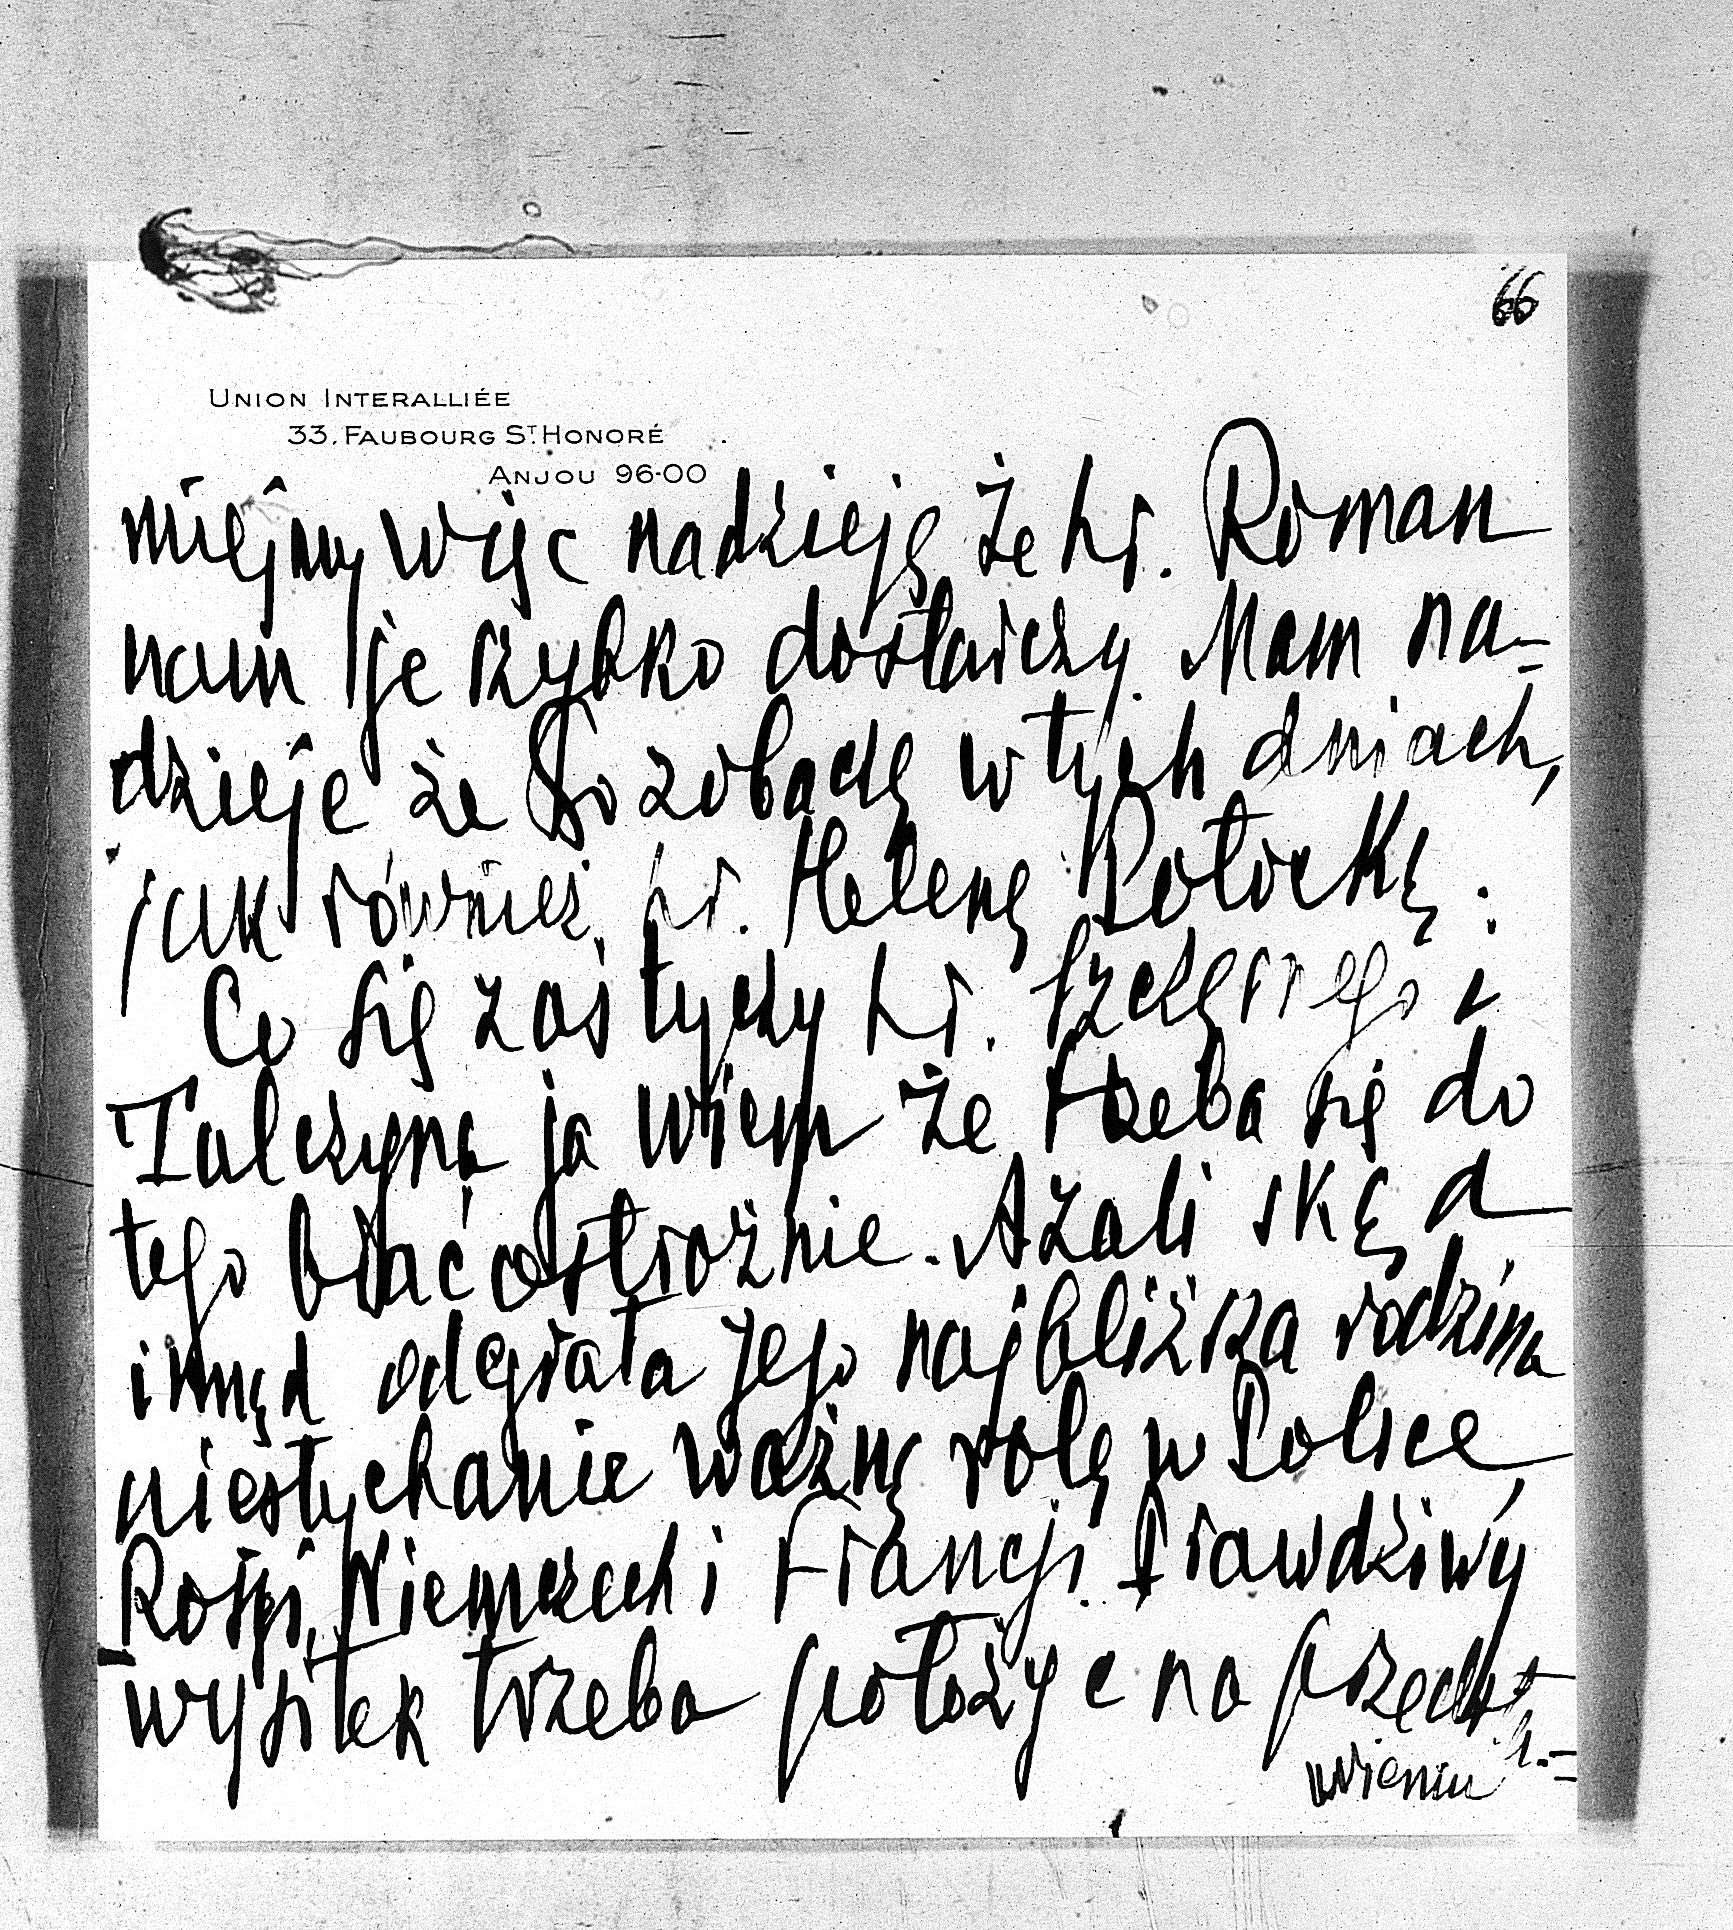 66
UNION INTERALLIÉE
33, FAUBOURG ST. HONORÉ
ANJOU 96-00
miejmy więc nadzieję że hr. Roman
nam je szybko dostarczy. Mam na=
dzieje że Go zobaczę w tych dniach,
jak również hr. Helenę Potocką.
Co się zaś tyczy hr. Szczęsnego i
Tulczyna ja wiem że trzeba się do
tego brać ostrożnie. Azali skąd
inąd odegrała jego najbliższa rodzina
niesłychanie ważną rolę w Polsce,
Rosji, Niemczech i Francji. Prawdziwy
wysiłek trzeba położyc na przedsta=
wieniu